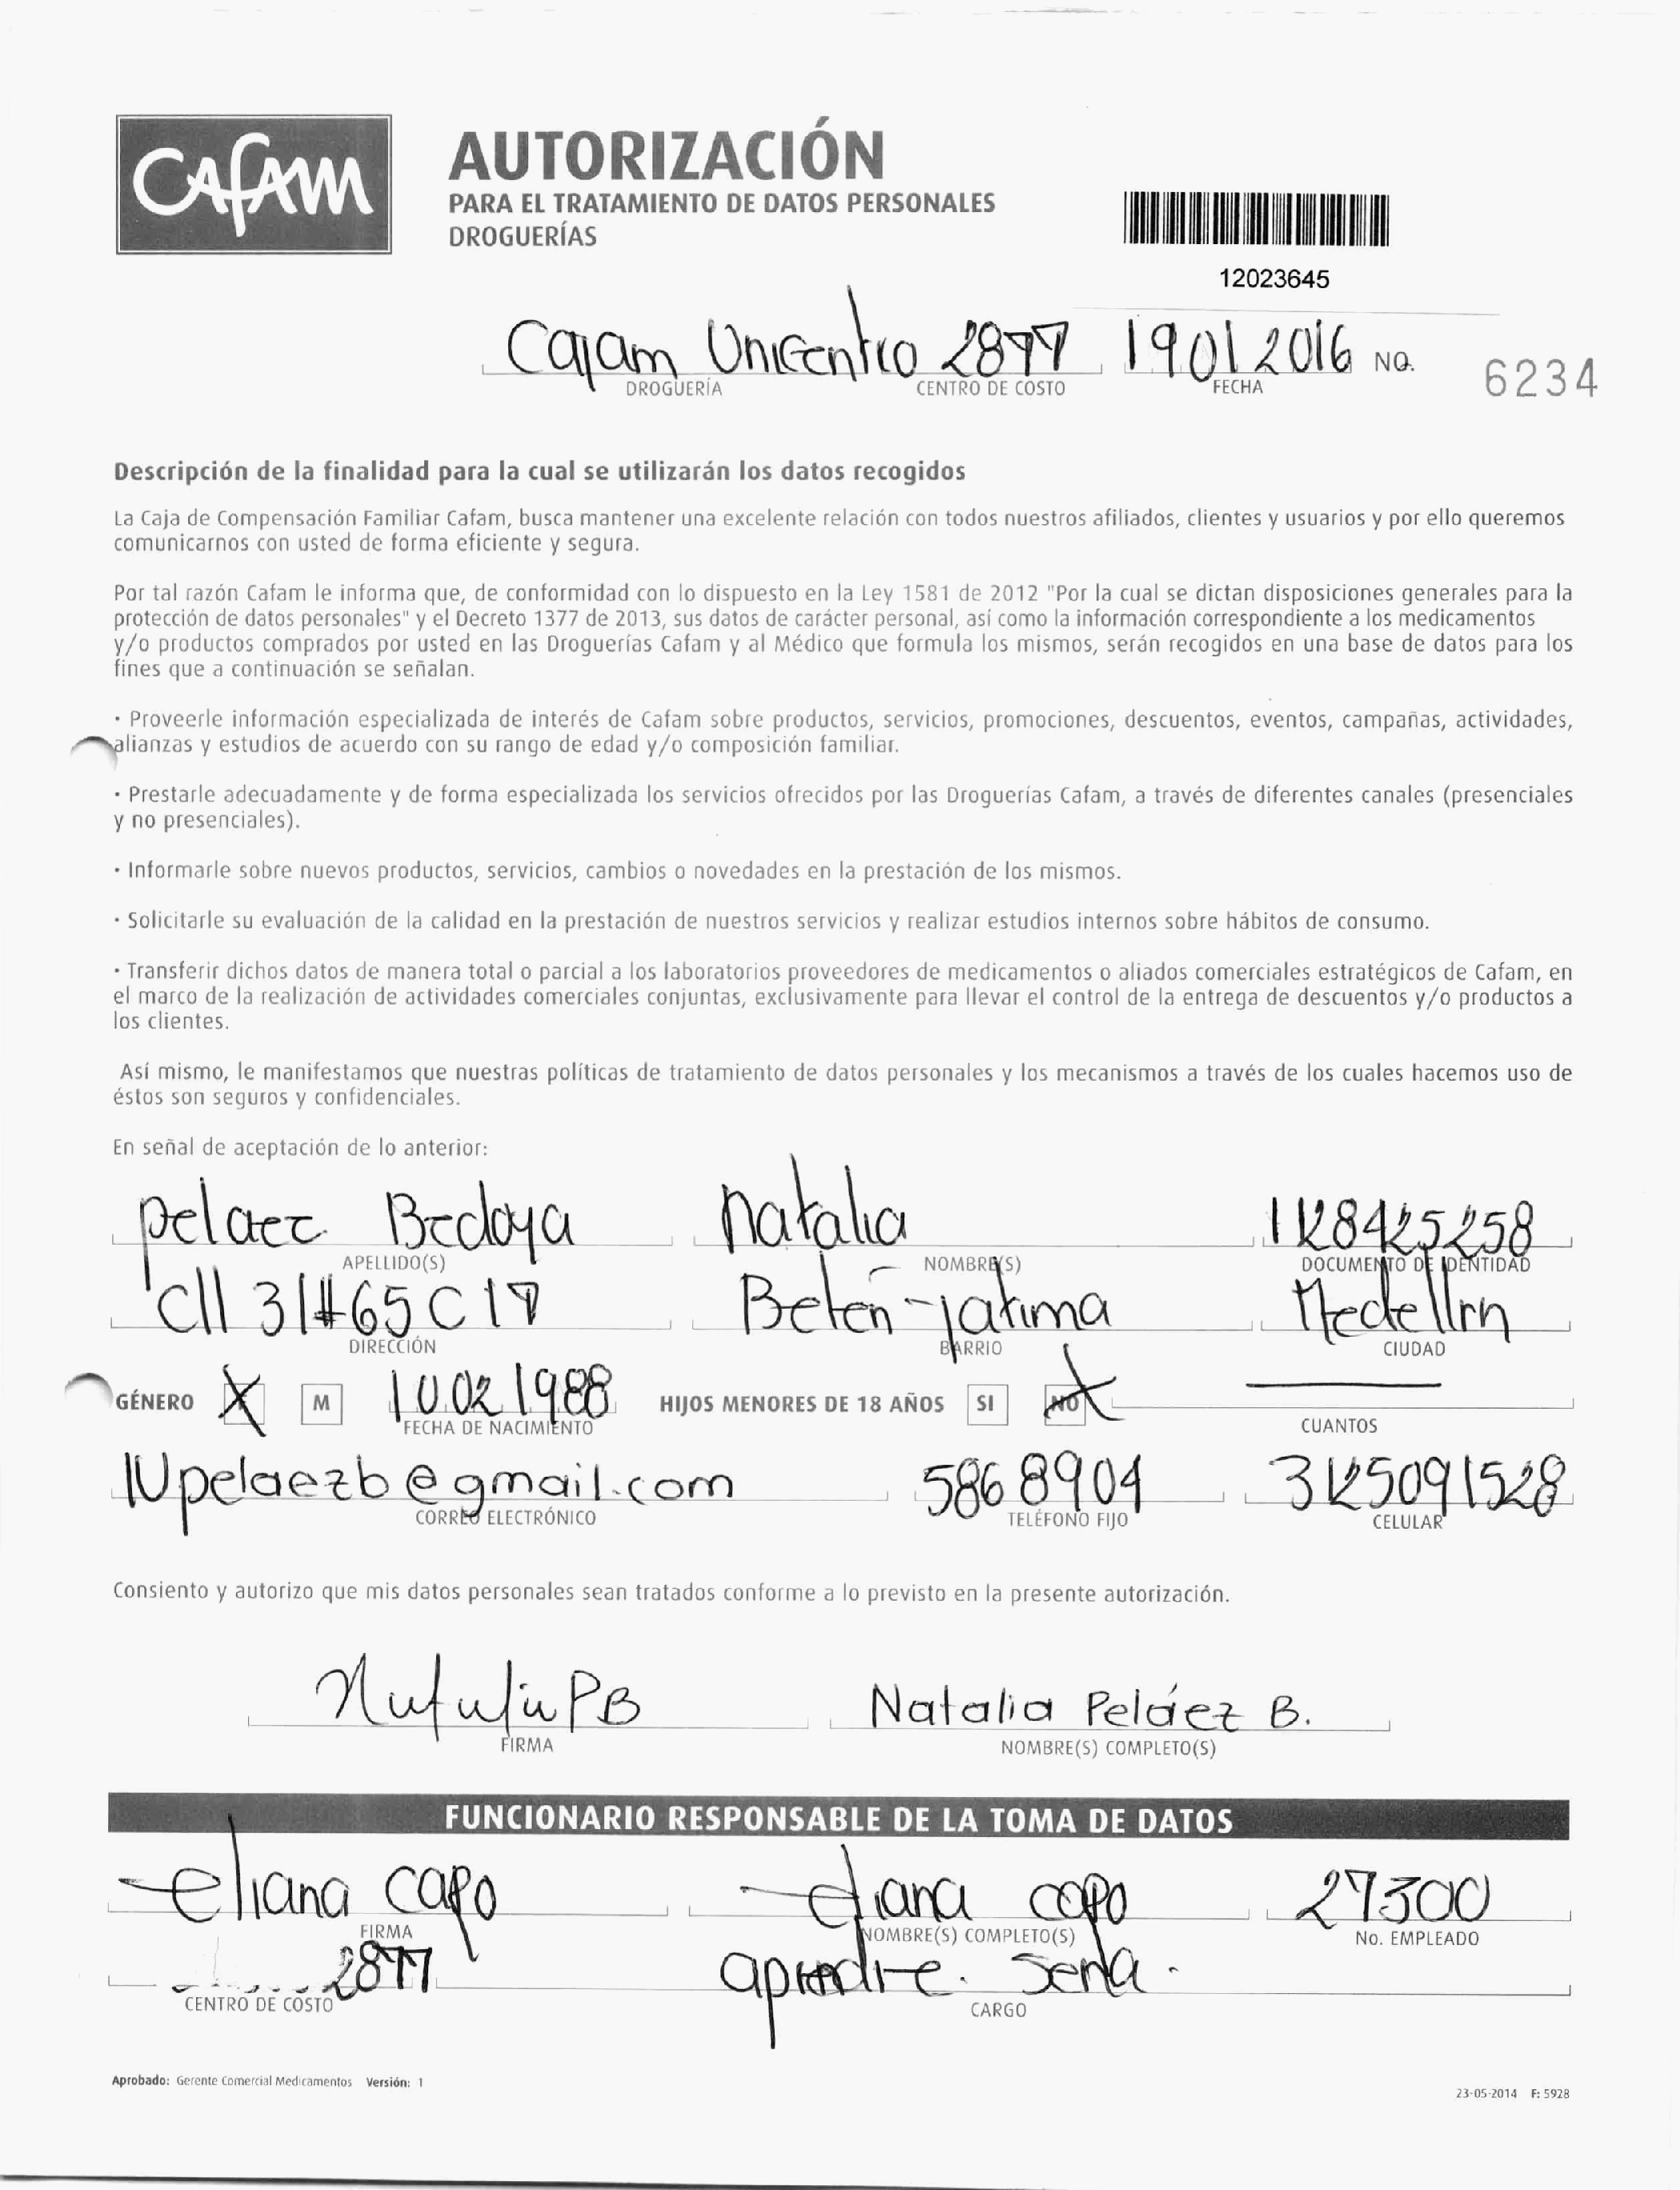 CAFAM
AUTORIZACIÓN
PARA EL TRATAMIENTO DE DATOS PERSONALES
DROGUERÍAS
12023645
Cafam Unicentro 2877 19012016 NO. 6234
DROGUERÍA CENTRO DE COSTO FECHA
Descripción de la finalidad para la cual se utilizarán los datos recogidos
La Caja de Compensación Familiar Cafam, busca mantener una excelente relación con todos nuestros afiliados, clientes y usuarios y por ello queremos
comunicarnos con usted de forma eficiente y segura.
Por tal razón Cafam le informa que, de conformidad con lo dispuesto en la Ley 1581 de 2012 "Por la cual se dictan disposiciones generales para la
protección de datos personales" y el Decreto 1377 de 2013, sus datos de carácter personal, así como la información correspondiente a los medicamentos
y/o productos comprados por usted en las Droguerías Cafam y al Médico que formula los mismos, serán recogidos en una base de datos para los
fines que a continuación se señalan.
· Proveerle información especializada de interés de Cafam sobre productos, servicios, promociones, descuentos, eventos, campañas, actividades,
alianzas y estudios de acuerdo con su rango de edad y/o composición familiar.
· Prestarle adecuadamente y de forma especializada los servicios ofrecidos por las Droguerías Cafam, a través de diferentes canales (presenciales
y no presenciales).
· Informarle sobre nuevos productos, servicios, cambios o novedades en la prestación de los mismos.
· Solicitarle su evaluación de la calidad en la prestación de nuestros servicios y realizar estudios internos sobre hábitos de consumo.
· Transferir dichos datos de manera total o parcial a los laboratorios proveedores de medicamentos o aliados comerciales estratégicos de Cafam, en
el marco de la realización de actividades comerciales conjuntas, exclusivamente para llevar el control de la entrega de descuentos y/o productos a
los clientes.
Así mismo, le manifestamos que nuestras políticas de tratamiento de datos personales y los mecanismos a través de los cuales hacemos uso de
éstos son seguros y confidenciales.
En señal de aceptación de lo anterior:
pelaez Bedoya natalia 1128425258
APELLIDO(S) NOMBRE(S) DOCUMENTO DE IDENTIDAD
Cll 31#65C17 Belen-fatima Medellin
DIRECCIÓN BARRIO CIUDAD
GÉNERO X M 10.02.1988 HIJOS MENORES DE 18 AÑOS SI NO X
FECHA DE NACIMIENTO CUANTOS
Npelaezb@gmail.com 586 8904 3125091528
CORREO ELECTRÓNICO TELÉFONO FIJO CELULAR
Consiento y autorizo que mis datos personales sean tratados conforme a lo previsto en la presente autorización.
Natalia PB Natalia Peláez B.
FIRMA NOMBRE(S) COMPLETO(S)
FUNCIONARIO RESPONSABLE DE LA TOMA DE DATOS
eliana capo eliana capo 27300
FIRMA NOMBRE(S) COMPLETO(S) No. EMPLEADO
2877 aprendire. Sena.
CENTRO DE COSTO CARGO
Aprobado: Gerente Comercial Medicamentos Versión: 1
23-05-2014 F: 5928